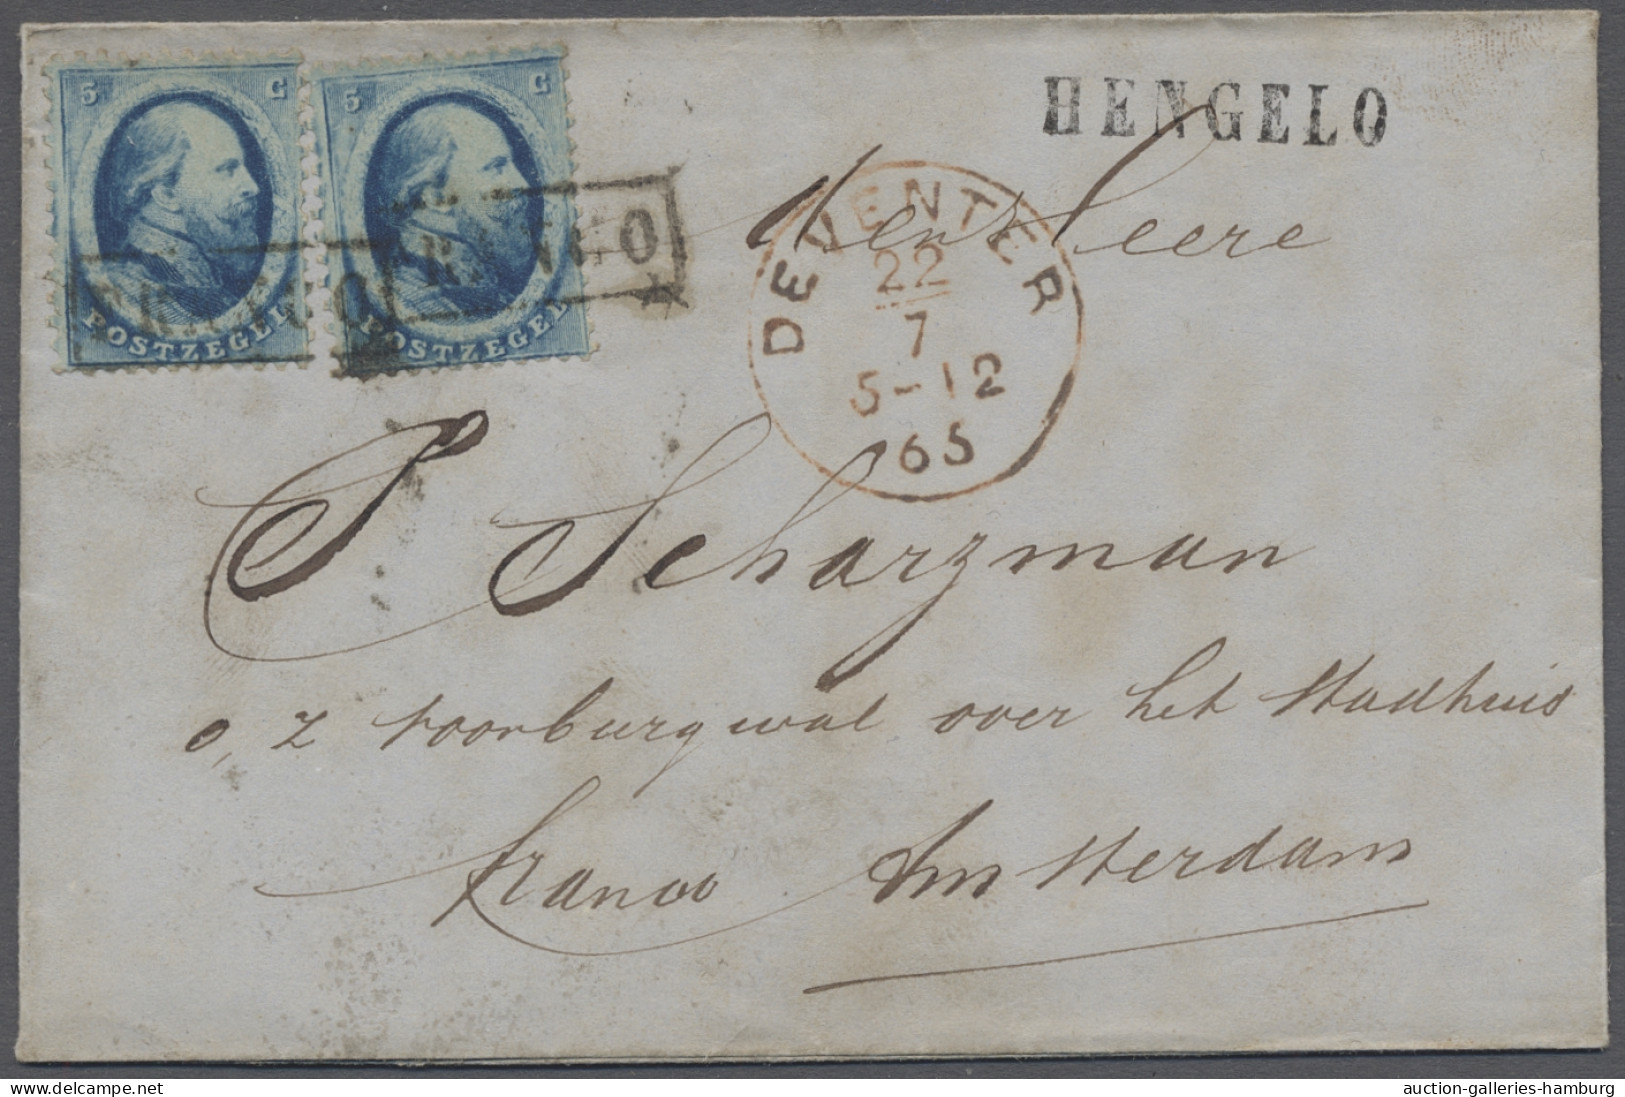 5 C
POSTZEGEL
FRANCO
5 C
POSTZEGEL
FRANCO
HENGELO
DEVENTER
22
7
5-12
65
den Heere
P Scharzman
o, z voorburgwal over het Stadhuis
franco Amsterdam
www.delcampe.net
auction-galleries-hamburg